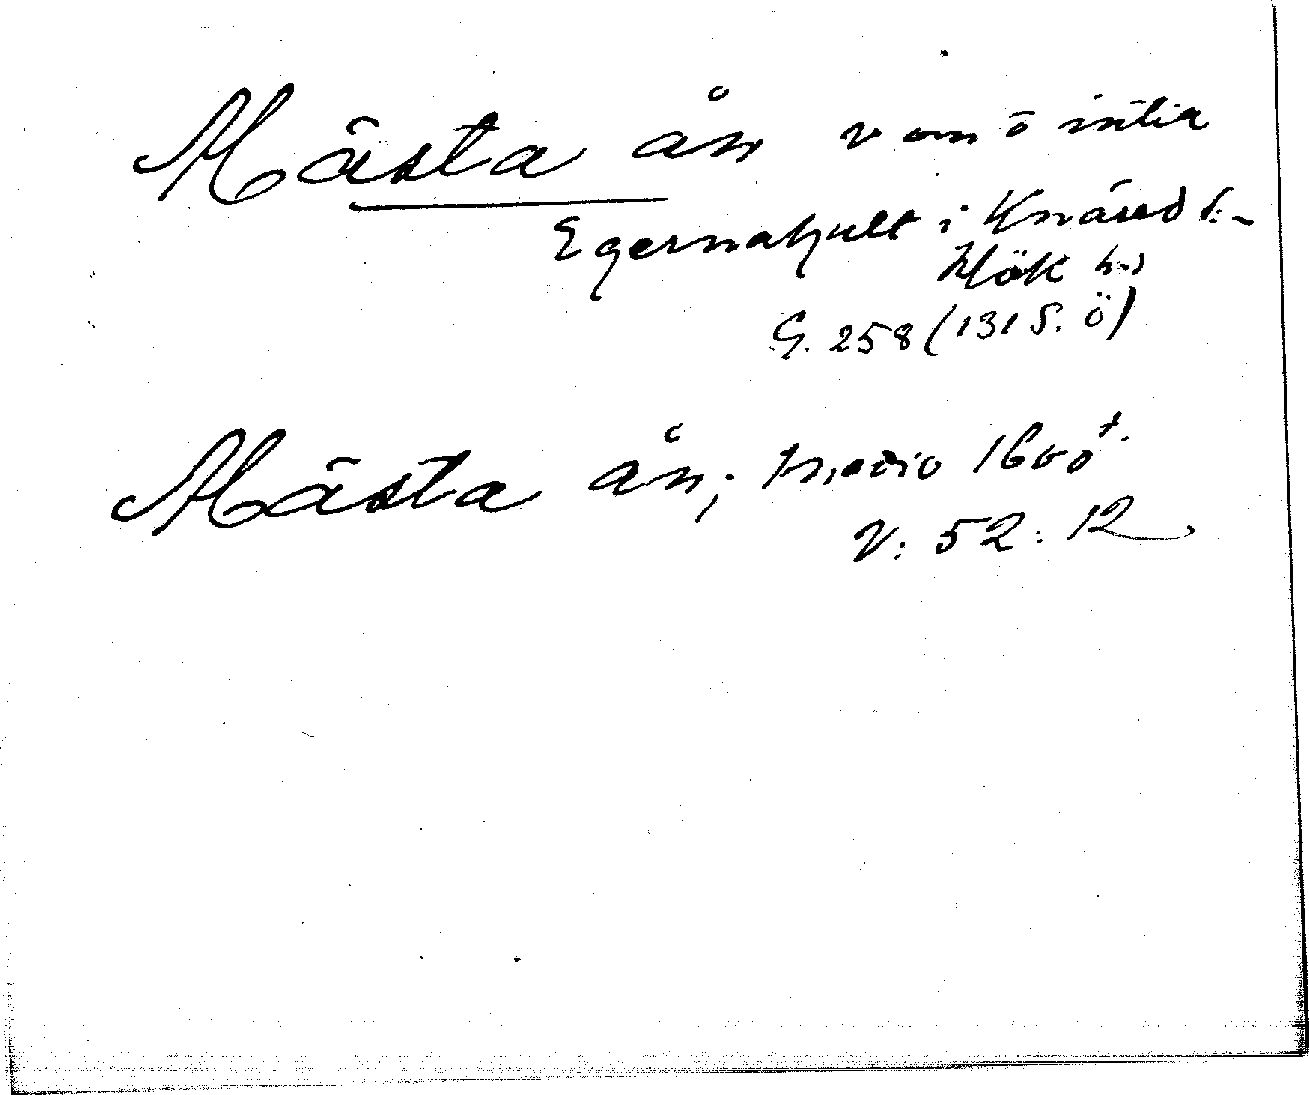 Mästa ån v om ö intia
Egernahult i Knäred s:n
Hök h:d
G. 258 (131 S. ö)
Mästa ån; medio 1600 t.
V: 52: 12